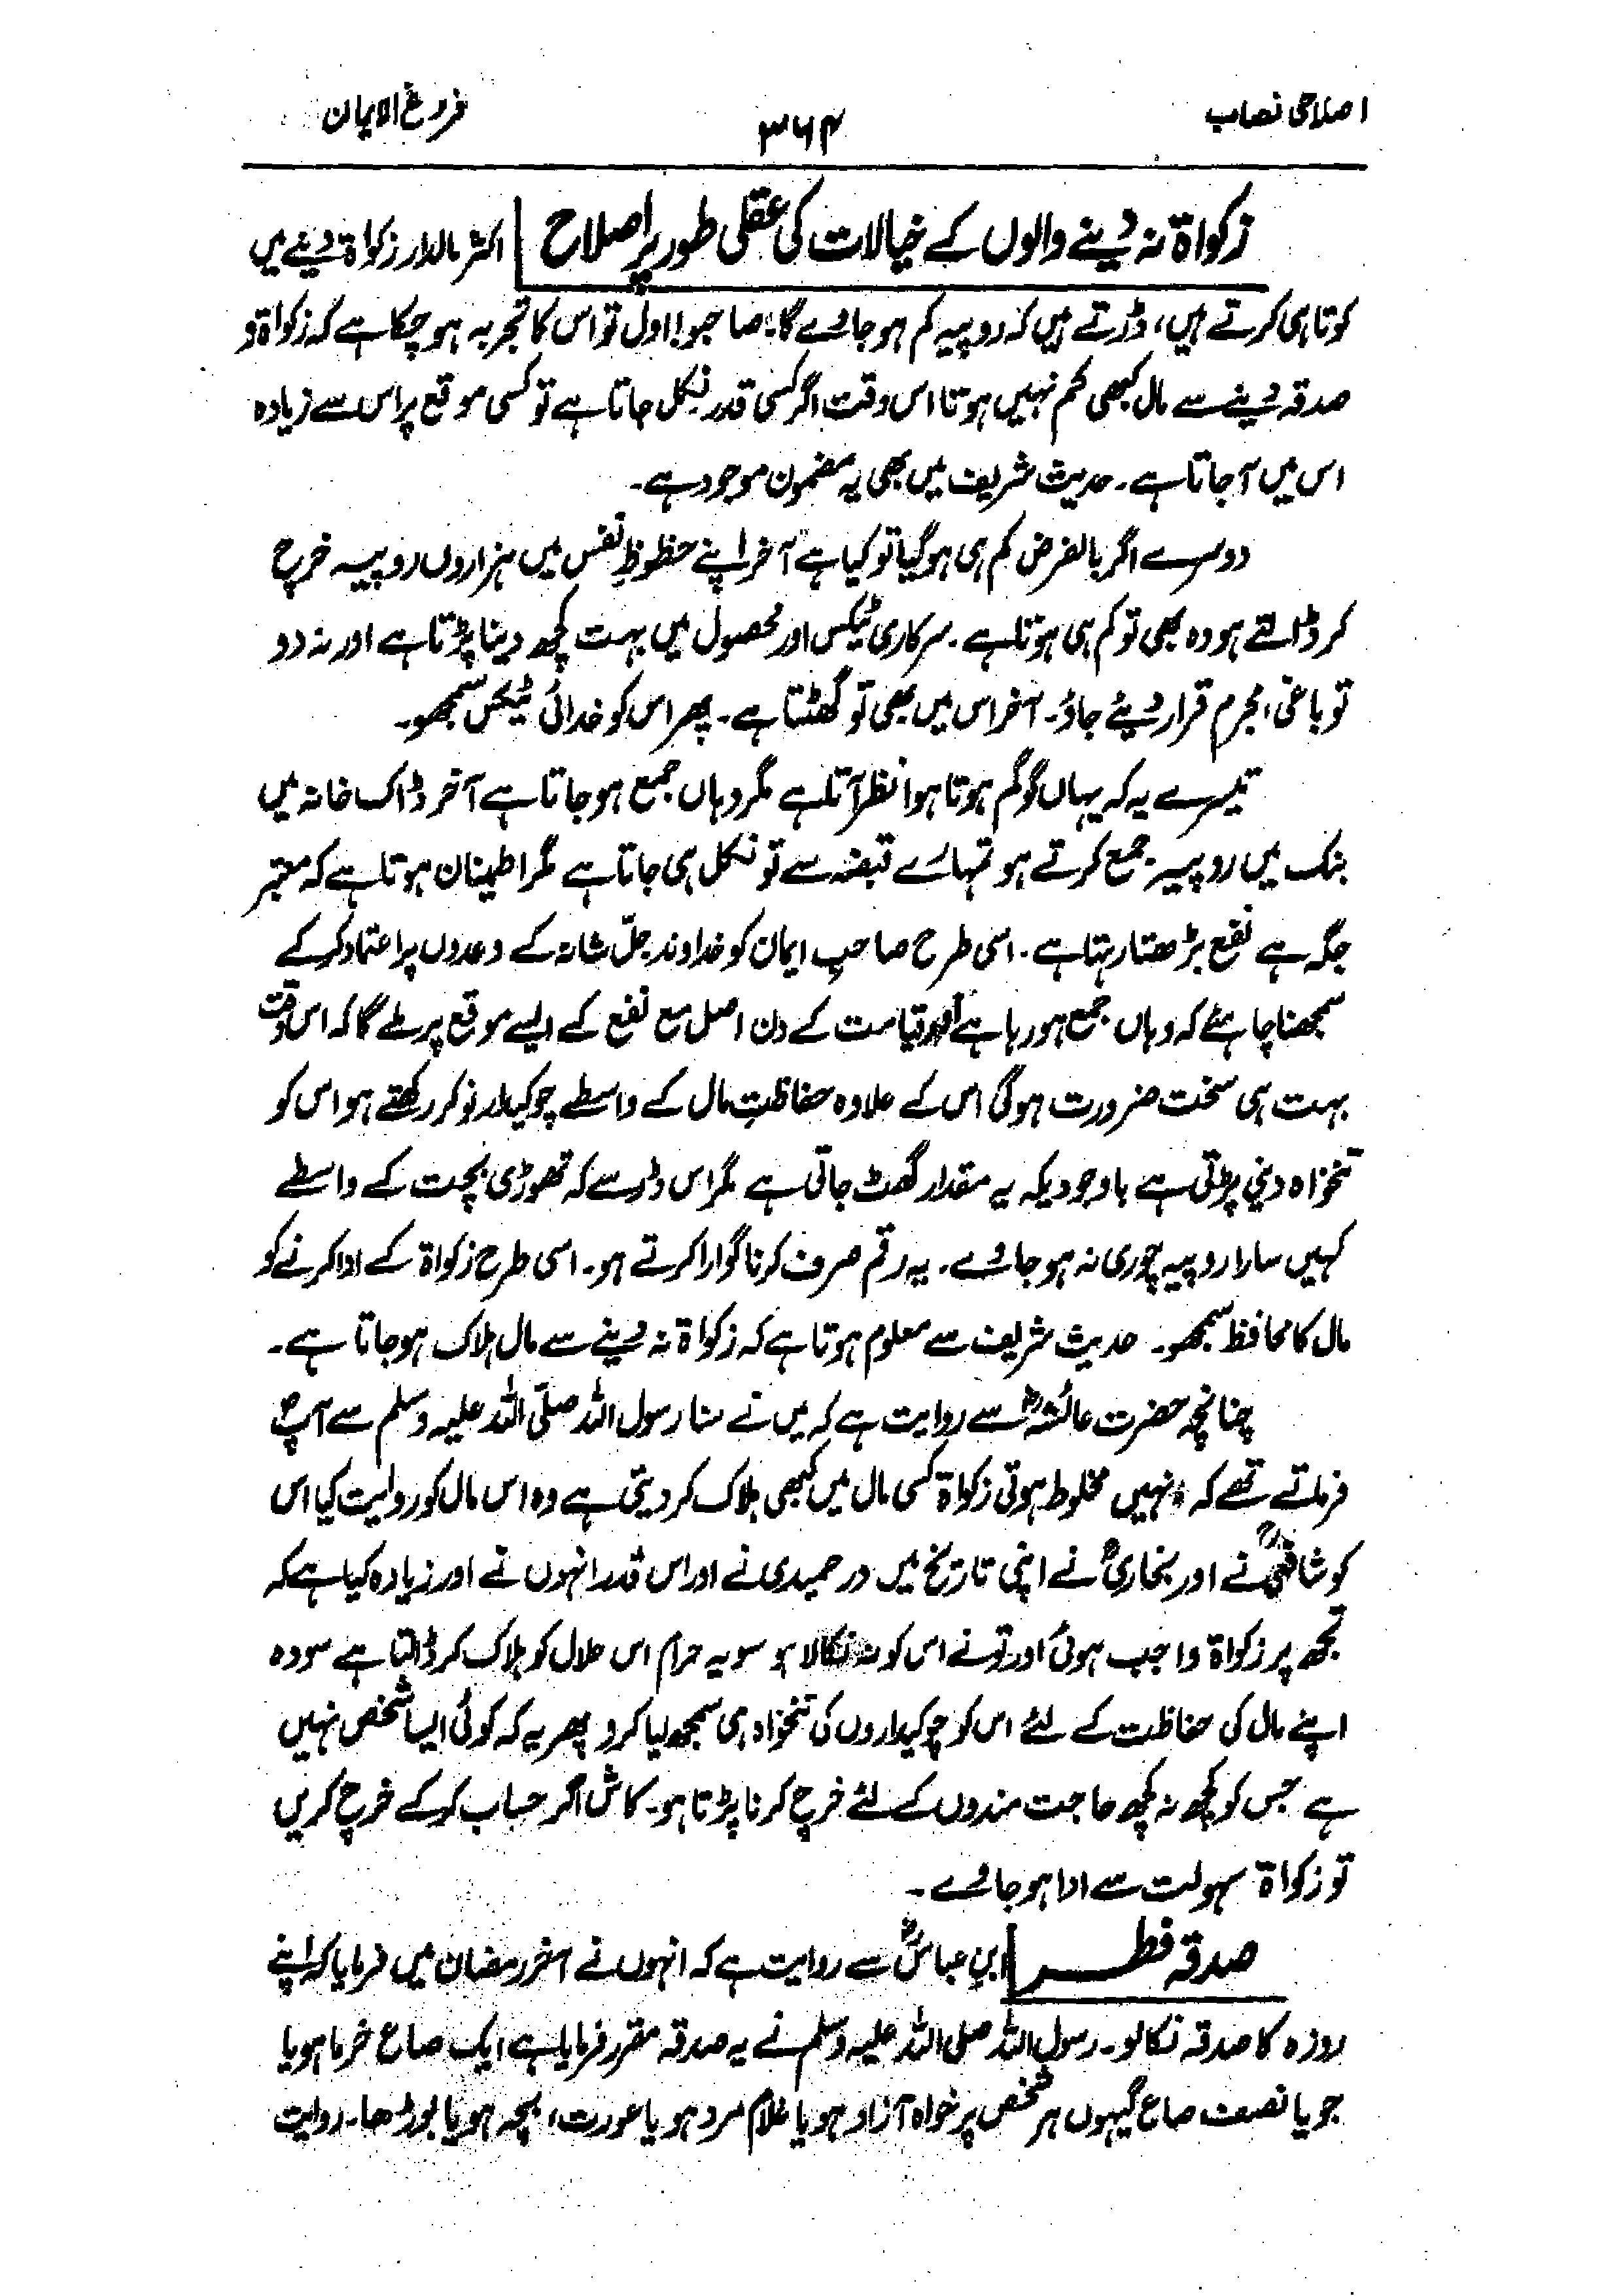 اصلاحی نصاب
۳۶۴
فروغ الایمان
زکواۃ نہ دینے والوں کے خیالات کی عقلی طور پر اصلاح | اکثر مالدار زکواۃ دینے میں
کوتاہی کرتے ہیں، ڈرتے ہیں کہ روپیہ کم ہو جاوے گا۔ صاحبو! اول تو اس کا تجربہ ہو چکا ہے کہ زکواۃ و
صدقہ دینے سے مال کبھی کم نہیں ہوتا اس وقت اگر کسی قدر نکل جاتا ہے تو کسی موقع پر اس سے زیادہ
اس میں آ جاتا ہے۔ حدیث شریف میں بھی یہ مضمون موجود ہے۔
دوسرے اگر بالفرض کم ہی ہو گیا تو کیا ہے آخر اپنے حظوظِ نفس میں ہزاروں روپیہ خرچ
کر ڈالتے ہو وہ بھی تو کم ہی ہوتا ہے۔ سرکاری ٹیکس اور محصول میں بہت کچھ دینا پڑتا ہے اور نہ دو
تو باغی، مجرم قرار دیئے جاؤ۔ آخر اس میں بھی تو گھٹتا ہے۔ پھر اس کو خدائی ٹیکس سمجھو۔
تیسرے یہ کہ یہاں گو کم ہوتا ہوا نظر آتا ہے مگر وہاں جمع ہو جاتا ہے آخر ڈاک خانہ میں
بنک میں روپیہ جمع کرتے ہو تمہارے قبضہ سے تو نکل ہی جاتا ہے مگر اطمینان ہوتا ہے کہ معتبر
جگہ ہے نفع بڑھتا رہتا ہے۔ اسی طرح صاحبِ ایمان کو خداوند جلّ شانہ کے وعدوں پر اعتماد کر کے
سمجھنا چاہئے کہ وہاں جمع ہو رہا ہے اور قیامت کے دن اصل مع نفع کے ایسے موقع پر ملے گا کہ اس وقت
بہت ہی سخت ضرورت ہوگی اس کے علاوہ حفاظتِ مال کے واسطے چوکیدار نوکر رکھتے ہو اس کو
تنخواہ دینی پڑتی ہے باوجودیکہ یہ مقدار گھٹ جاتی ہے مگر اس ڈر سے کہ تھوڑی بچت کے واسطے
کہیں سارا روپیہ چوری نہ ہو جاوے۔ یہ رقم صرف کرنا گوارا کرتے ہو۔ اسی طرح زکواۃ کے ادا کرنے کو
مال کا محافظ سمجھو۔ حدیث شریف سے معلوم ہوتا ہے کہ زکواۃ نہ دینے سے مال ہلاک ہو جاتا ہے۔
چنانچہ حضرت عائشہؓ سے روایت ہے کہ میں نے سنا رسول اللہ صلّی اللہ علیہ وسلم سے آپؐ
فرماتے تھے کہ نہیں مخلوط ہوتی زکواۃ کسی مال میں کبھی ہلاک کر دیتی ہے وہ اس مال کو روایت کیا اس
کو شافعیؒ نے اور بخاریؒ نے اپنی تاریخ میں در حمیدی نے اور اس قدر انہوں نے اور زیادہ کیا ہے کہ
تجھ پر زکواۃ واجب ہوئی اور تو نے اس کو نہ نکالا ہو سو یہ حرام اس حلال کو ہلاک کر ڈالتا ہے سو وہ
اپنے مال کی حفاظت کے لئے اس کو چوکیداروں کی تنخواہ ہی سمجھ لیا کرو پھر یہ کہ کوئی ایسا شخص نہیں
ہے جس کو کچھ نہ کچھ حاجت مندوں کے لئے خرچ کرنا پڑتا ہو۔ کاش اگر حساب کر کے خرچ کریں
تو زکواۃ سہولت سے ادا ہو جاوے۔
صدقہ فطر | ابنِ عباسؓ سے روایت ہے کہ انہوں نے آخر رمضان میں فرمایا کہ اپنے
روزہ کا صدقہ نکالو۔ رسول اللہ صلی اللہ علیہ وسلم نے یہ صدقہ مقرر فرمایا ہے ایک صاع خرما ہو یا
جو یا نصف صاع گیہوں ہر شخص پر خواہ آزاد ہو یا غلام مرد ہو یا عورت، بچہ ہو یا بوڑھا۔ روایت